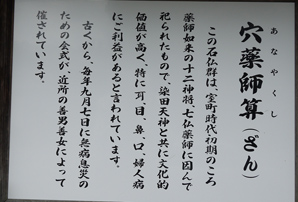 あなやくし
穴薬師算(ざん)
この石仏群は、室町時代初期のころ
薬師如来の十二神将、七仏薬師に因んで
祀られたもので、染田天神と共に文化的
価値が高く、特に耳、目、鼻、口、婦人病
にご利益があると言われています。
古くから、毎年九月七日に無病息災の
ための会式が、近所の善男善女によって
催されています。